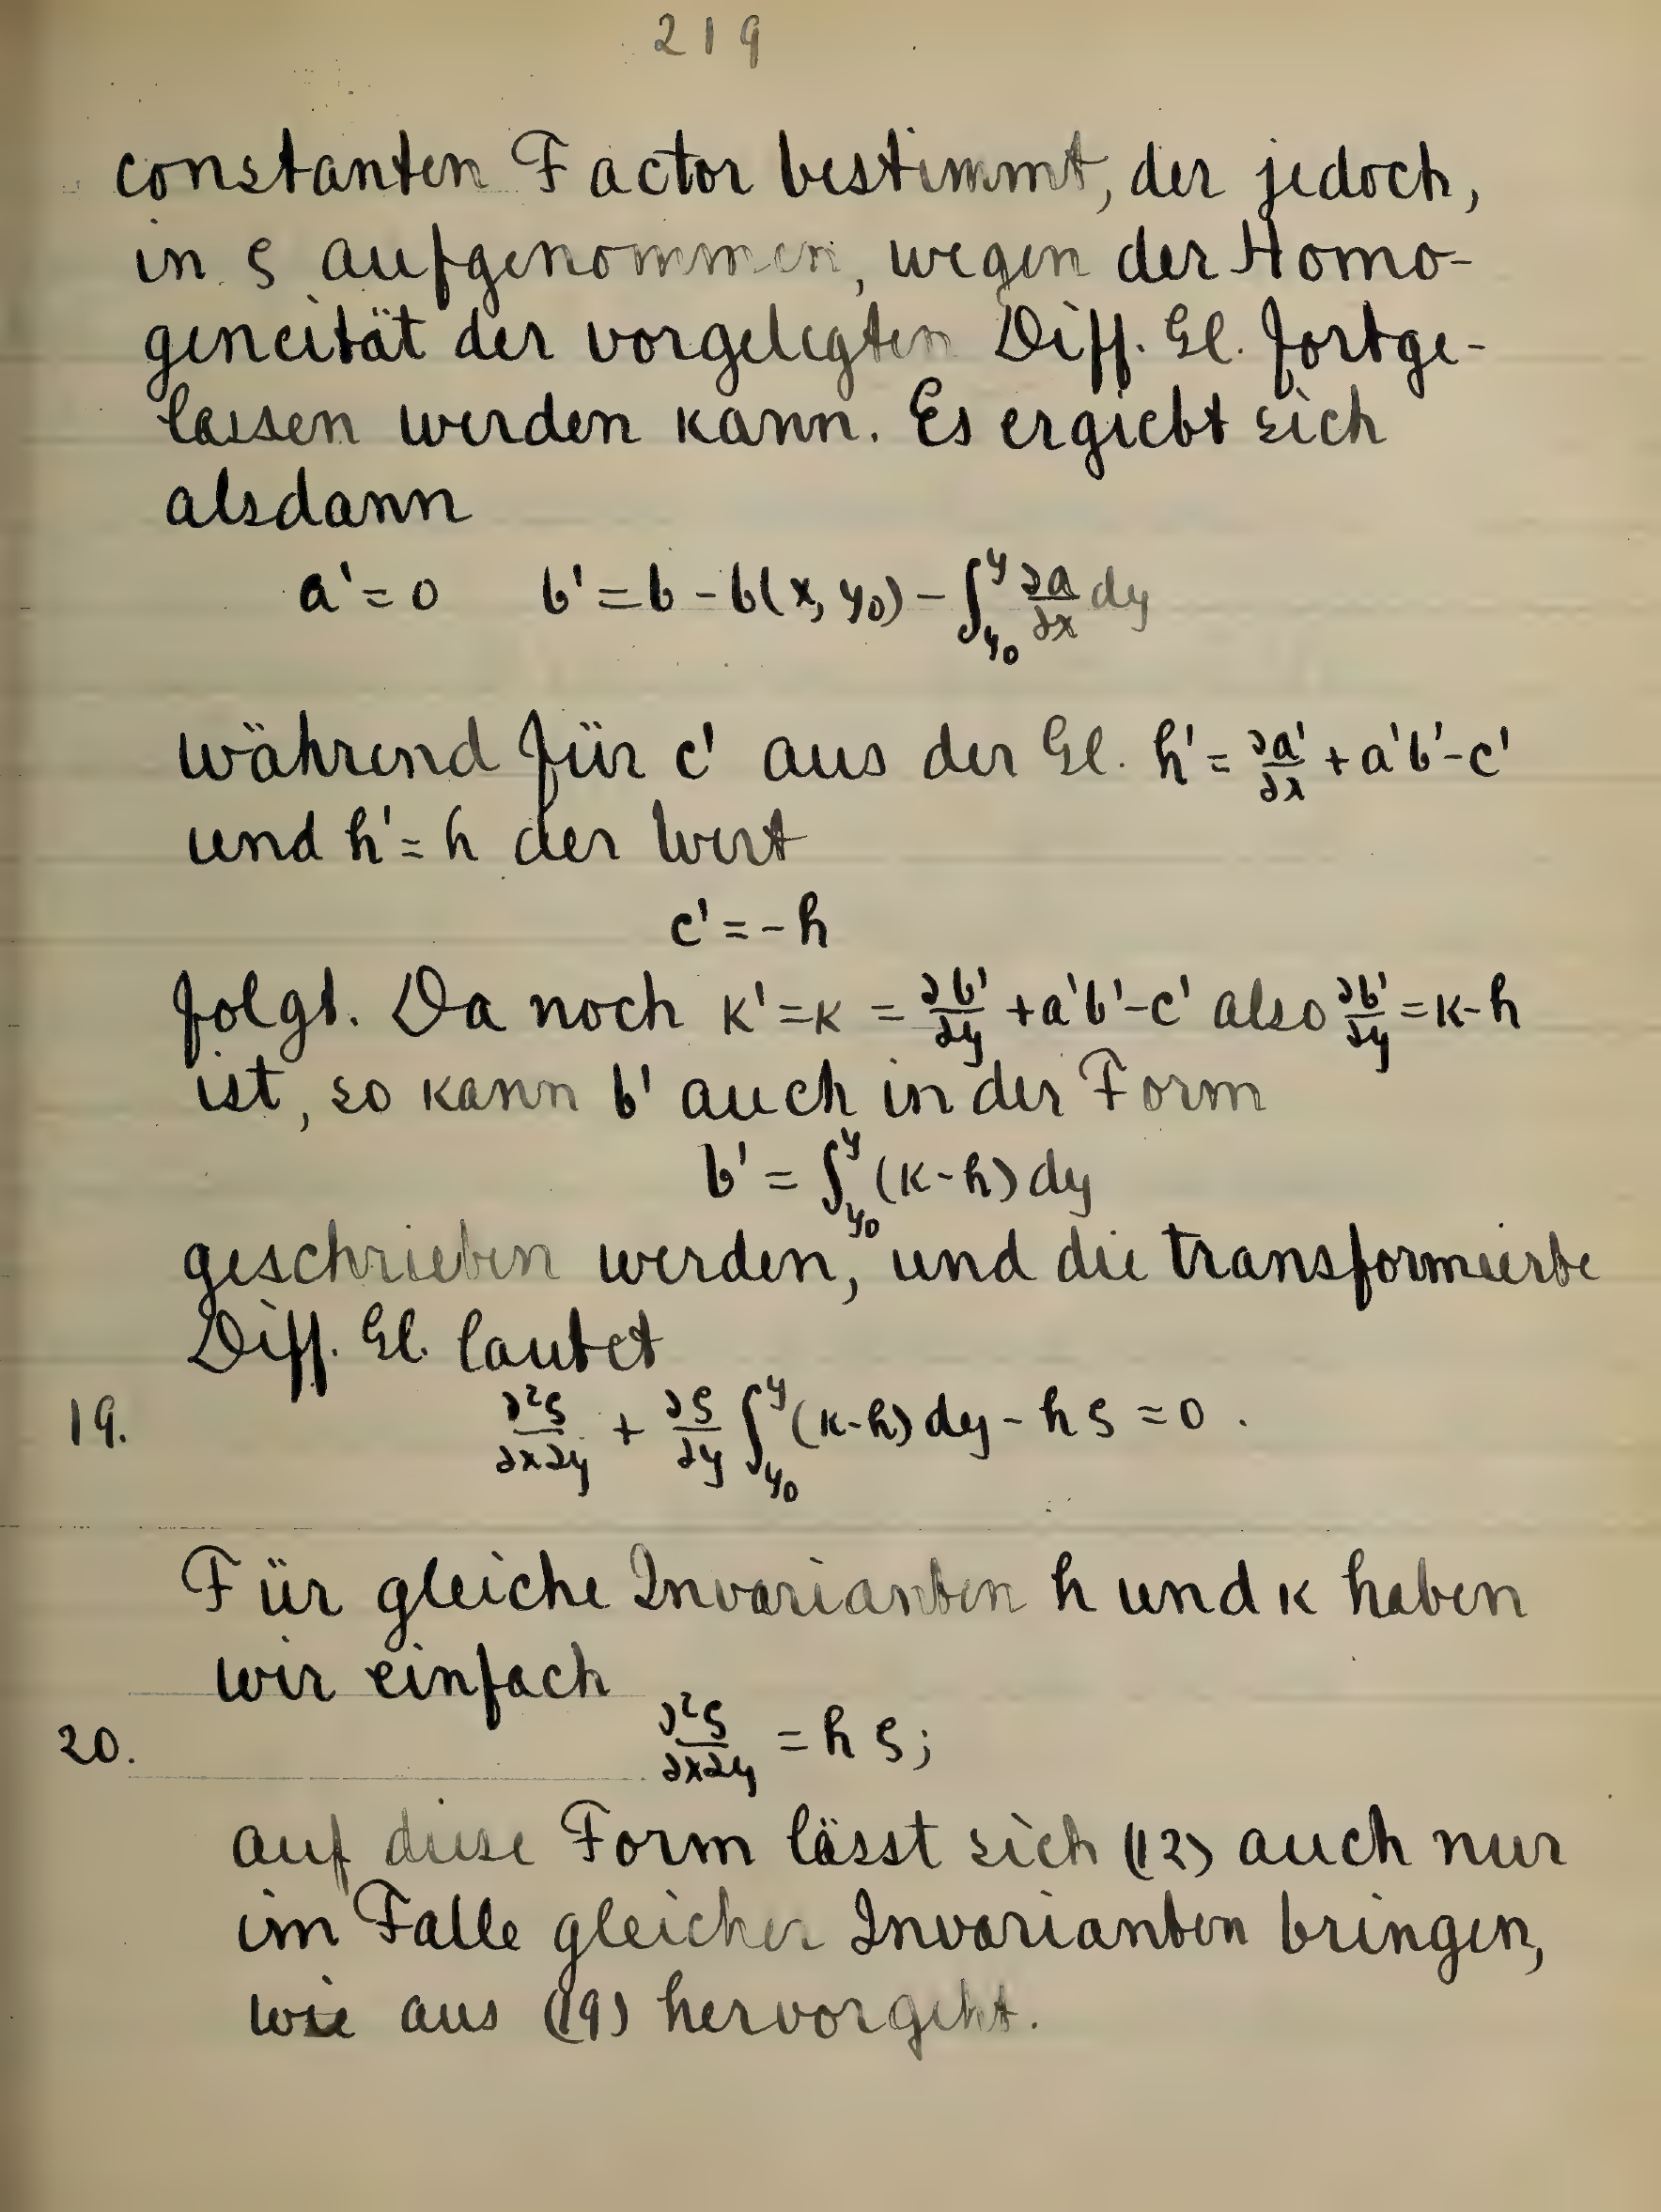 219
constanten Factor bestimmt, der jedoch,
in ς aufgenommen, wegen der Homo-
geneität der vorgelegten Diff. Gl. fortge-
lassen werden kann. Es ergiebt sich
alsdann
a' = 0   b' = b - b(x, y₀) - ∫_{y₀}^{y} ∂a/∂x dy
während für c' aus der Gl. h' = ∂a'/∂x + a'b' - c'
und h' = h der Wert
c' = -h
folgt. Da noch κ' = κ = ∂b'/∂y + a'b' - c' also ∂b'/∂y = κ - h
ist, so kann b' auch in der Form
b' = ∫_{y₀}^{y} (κ - h) dy
geschrieben werden, und die transformierte
Diff. Gl. lautet
19. ∂²ς/∂x∂y + ∂ς/∂y ∫_{y₀}^{y} (κ - h) dy - h ς = 0.
Für gleiche Invarianten h und κ haben
wir einfach
20. ∂²ς/∂x∂y = h ς;
auf diese Form lässt sich (12) auch nur
im Falle gleicher Invarianten bringen,
wie aus (19) hervorgeht.